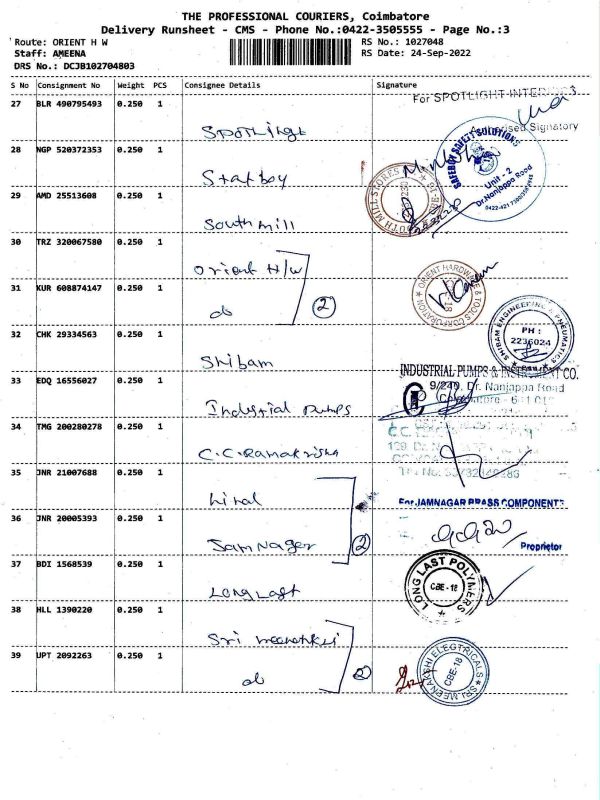 THE PROFESSIONAL COURIERS, Coimbatore
Delivery Runsheet - CMS - Phone No.:0422-3505555 - Page No.:3
Route: ORIENT H W
Staff: AMEENA
DRS No.: DCJB102704803
RS No.: 1027048
RS Date: 24-Sep-2022
S No Consignment No Weight PCS Consignee Details Signature
27 BLR 490795493 0.250 1 Spotlingt
For SPOTLIGHT INTERIORS
Authorised Signatory
28 NGP 520372353 0.250 1 Stafboy
SAFEBOY SAFETY SOLUTIONS
Unit - 2
Dr.Nanjappa Road
29 AMD 25513608 0.250 1 South Mill
SOUTH MILL STORES
30 TRZ 320067580 0.250 1 Orient H/W
31 KUR 608874147 0.250 1 do 2
ORIENT HARDWARE & TOOLS CORPORATION
32 CHK 29334563 0.250 1 Shibam
SHIBAM ENGINEERING & PNEUMATICS
PH :
2236024
33 EDQ 16556027 0.250 1 Industrial Pumps
INDUSTRIAL PUMPS & INSTRUMENT CO.
9/240, Dr. Nanjappa Road
34 TMG 200280278 0.250 1 C.C. Ramakrishna
35 JNR 21007688 0.250 1 Liral
For JAMNAGAR BRASS COMPONENTS
36 JNR 20005393 0.250 1 Jamnager 2
Proprietor
37 BDI 1568539 0.250 1 Long Last
LONG LAST POLYMERS
CBE-18
38 HLL 1390220 0.250 1 Sri meenatkshi
39 UPT 2092263 0.250 1 do 2
SRI MEENAKSHI ELECTRICALS
CBE-18